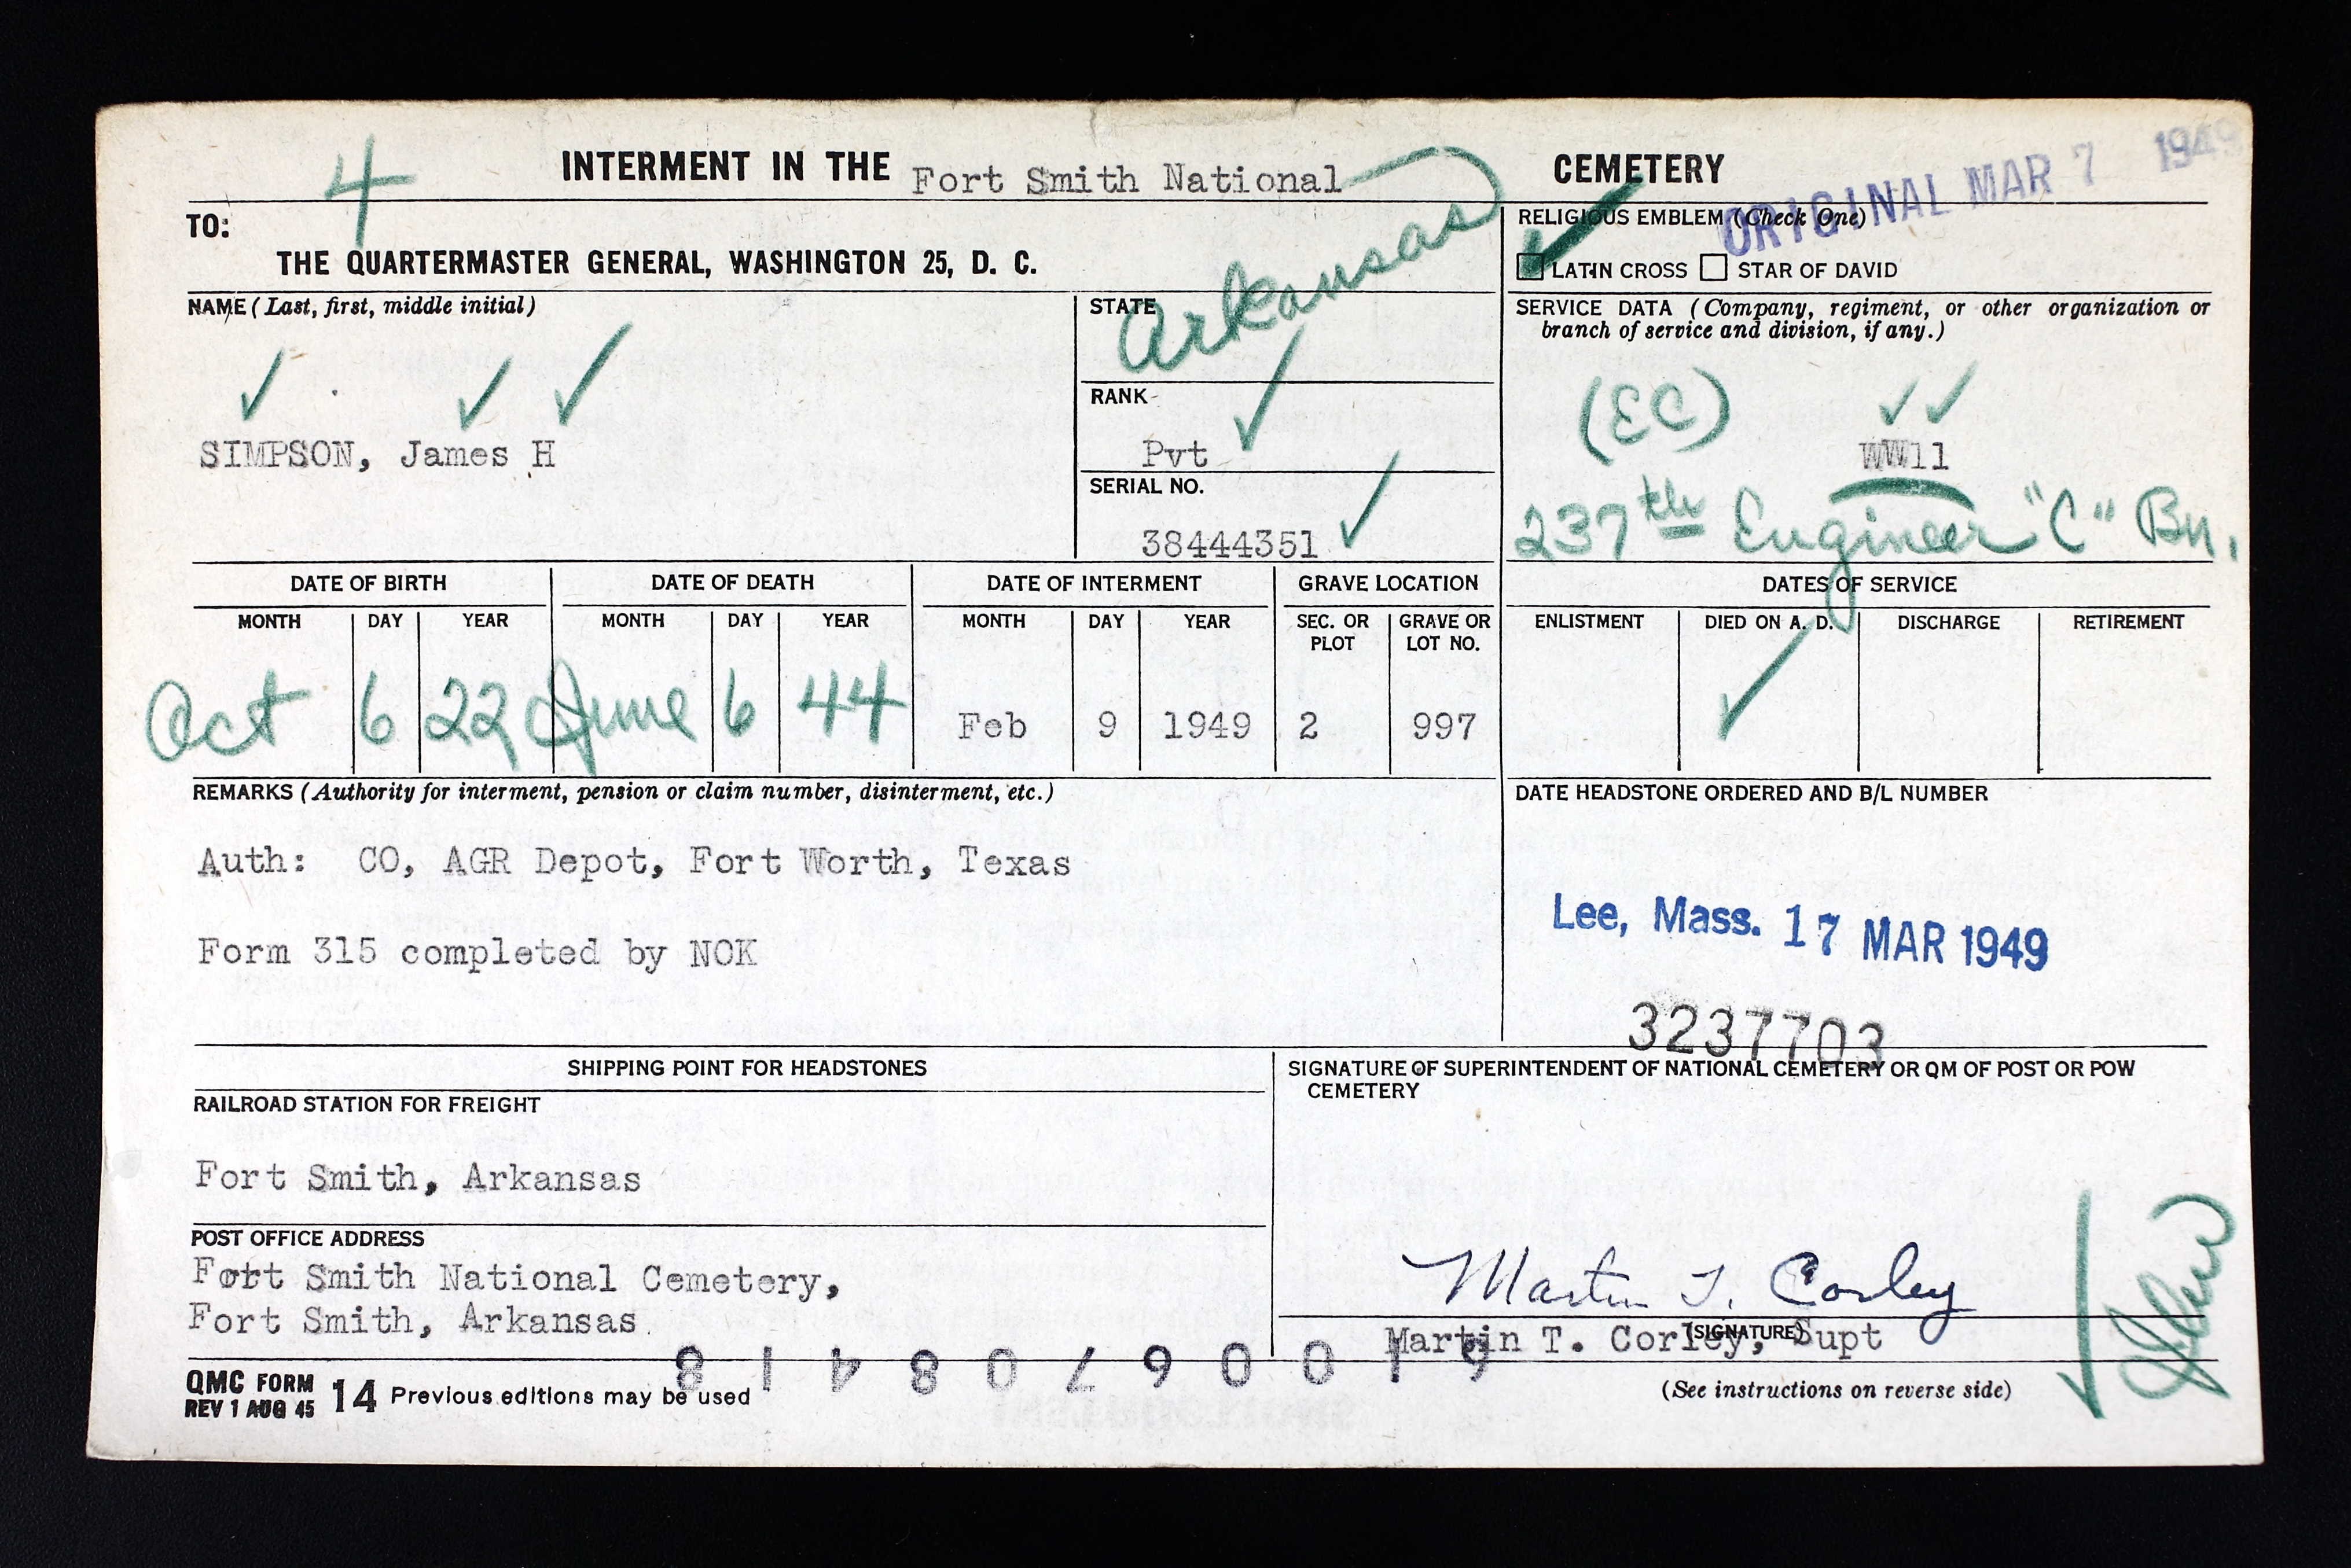 4
INTERMENT IN THE Fort Smith National CEMETERY
ORIGINAL MAR 7 1949
TO:
THE QUARTERMASTER GENERAL, WASHINGTON 25, D. C.
RELIGIOUS EMBLEM (Check One)
LATIN CROSS STAR OF DAVID
NAME (Last, first, middle initial)
SIMPSON, James H
STATE
Arkansas
RANK
Pvt
SERIAL NO.
38444351
SERVICE DATA (Company, regiment, or other organization or
branch of service and division, if any.)
(EC) WW11
237th Engineer "C" Bn.
DATE OF BIRTH DATE OF DEATH DATE OF INTERMENT GRAVE LOCATION DATES OF SERVICE
MONTH DAY YEAR MONTH DAY YEAR MONTH DAY YEAR SEC. OR PLOT GRAVE OR LOT NO. ENLISTMENT DIED ON A. D. DISCHARGE RETIREMENT
Oct 6 22 June 6 44 Feb 9 1949 2 997
REMARKS (Authority for interment, pension or claim number, disinterment, etc.)
Auth: CO, AGR Depot, Fort Worth, Texas
Form 315 completed by NOK
DATE HEADSTONE ORDERED AND B/L NUMBER
Lee, Mass. 17 MAR 1949
3237703
SHIPPING POINT FOR HEADSTONES
RAILROAD STATION FOR FREIGHT
Fort Smith, Arkansas
POST OFFICE ADDRESS
Fort Smith National Cemetery,
Fort Smith, Arkansas
SIGNATURE OF SUPERINTENDENT OF NATIONAL CEMETERY OR QM OF POST OR POW
CEMETERY
Martin T. Corley
(SIGNATURE)
Martin T. Corley, Supt
QMC FORM
REV 1 AUG 45 14 Previous editions may be used
(See instructions on reverse side)
61006708418